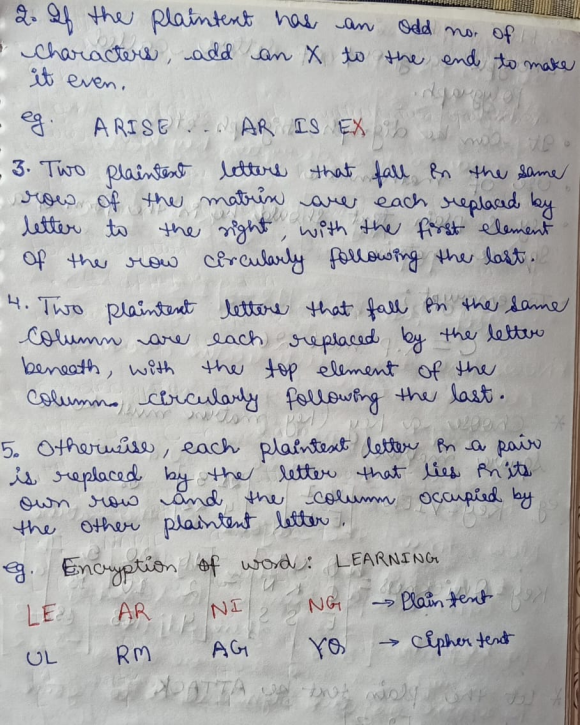 2. If the plaintext has an odd no. of
characters, add an X to the end to make
it even.
eg. ARISE ... AR IS EX
3. Two plaintext letters that fall in the same
row of the matrix are each replaced by
letter to the right, with the first element
of the row circularly following the last.
4. Two plaintext letters that fall in the same
column are each replaced by the letter
beneath, with the top element of the
column circularly following the last.
5. Otherwise, each plaintext letter in a pair
is replaced by the letter that lies in its
own row and the column occupied by
the other plaintext letter.
eg. Encryption of word: LEARNING
LE AR NI NG → Plain text
UL RM AG YQ → Cipher text